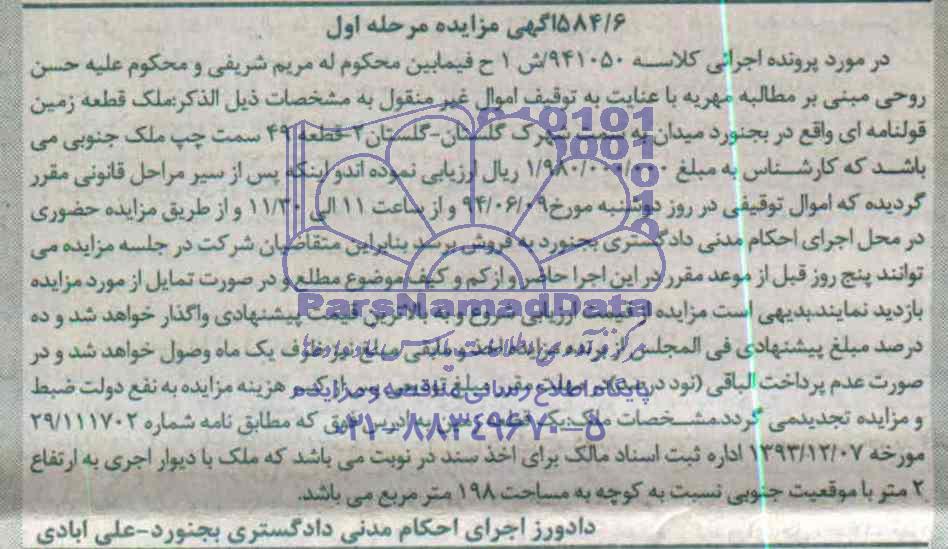 ۵۸۴/۶اگهی مزایده مرحله اول
در مورد پرونده اجرائی کلاسه ۹۴۱۰۵۰/ش ۱ ح فیمابین محکوم له مریم شریفی و محکوم علیه حسن
روحی مبنی بر مطالبه مهریه با عنایت به توقیف اموال غیر منقول به مشخصات ذیل الذکر:ملک قطعه زمین
قولنامه ای واقع در بجنورد میدان به سمت شهرک گلستان-گلستان۲-قطعه ۴۹ سمت چپ ملک جنوبی می
باشد که کارشناس به مبلغ ۱/۹۸۰/۰۰۰/۰۰۰ ریال ارزیابی نموده اندو اینکه پس از سیر مراحل قانونی مقرر
گردیده که اموال توقیفی در روز دوشنبه مورخ۹۴/۰۶/۰۹ و از ساعت ۱۱ الی ۱۱/۳۰ و از طریق مزایده حضوری
در محل اجرای احکام مدنی دادگستری بجنورد به فروش برسد بنابراین متقاضیان شرکت در جلسه مزایده می
توانند پنج روز قبل از موعد مقرر در این اجرا حاضر و از کم و کیف موضوع مطلع و در صورت تمایل از مورد مزایده
بازدید نمایند.بدیهی است مزایده از قیمت ارزیابی شروع و به بالاترین قیمت پیشنهادی واگذار خواهد شد و ده
درصد مبلغ پیشنهادی فی المجلس از برنده مزایده اخذ و مابقی مبلغ نیز ظرف یک ماه وصول خواهد شد و در
صورت عدم پرداخت الباقی (نود درصد) در مهلت مقرر مبلغ تودیعی پس از کسر هزینه مزایده به نفع دولت ضبط
و مزایده تجدیدمی گردد.مشخصات ملک:یک قطعه زمین به ادرس فوق که مطابق نامه شماره ۲۹/۱۱۱۷۰۲
مورخه ۱۳۹۳/۱۲/۰۷ اداره ثبت اسناد مالک برای اخذ سند در نوبت می باشد که ملک با دیوار اجری به ارتفاع
۲ متر با موقعیت جنوبی نسبت به کوچه به مساحت ۱۹۸ متر مربع می باشد.
دادورز اجرای احکام مدنی دادگستری بجنورد-علی ابادی
ParsNamadData
پایگاه اطلاع رسانی مناقصه و مزایده
۰۲۱-۸۸۳۴۹۶۷۰-۵